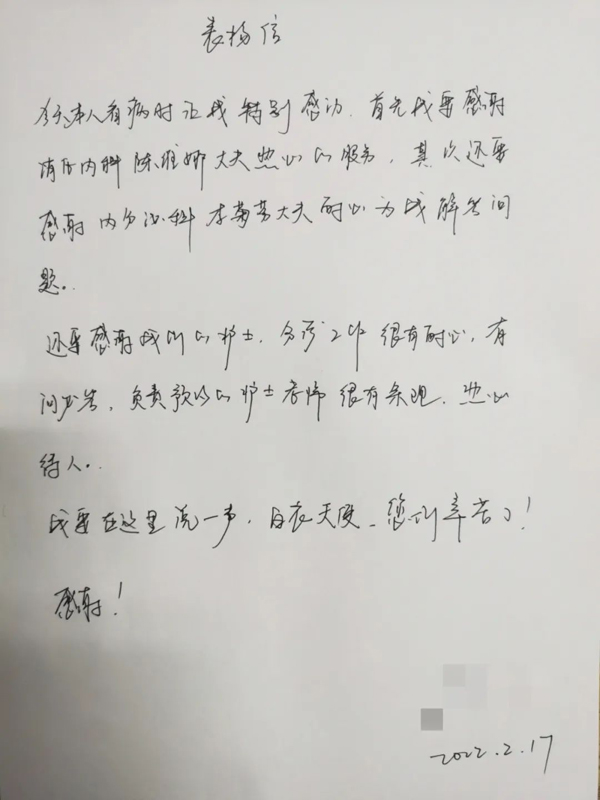 表扬信
今天本人看病时让我特别感动，首先我要感谢
肾内科陈维娜大夫热心的服务，其次还要
感谢内分泌科李菊芳大夫耐心为我解答问
题。
还要感谢我们的护士，分诊工作很有耐心，有
问必答，负责预约的护士老师很有条理，热心
待人。
我要在这里说一声，白衣天使，您们辛苦了！
感谢！
2022.2.17